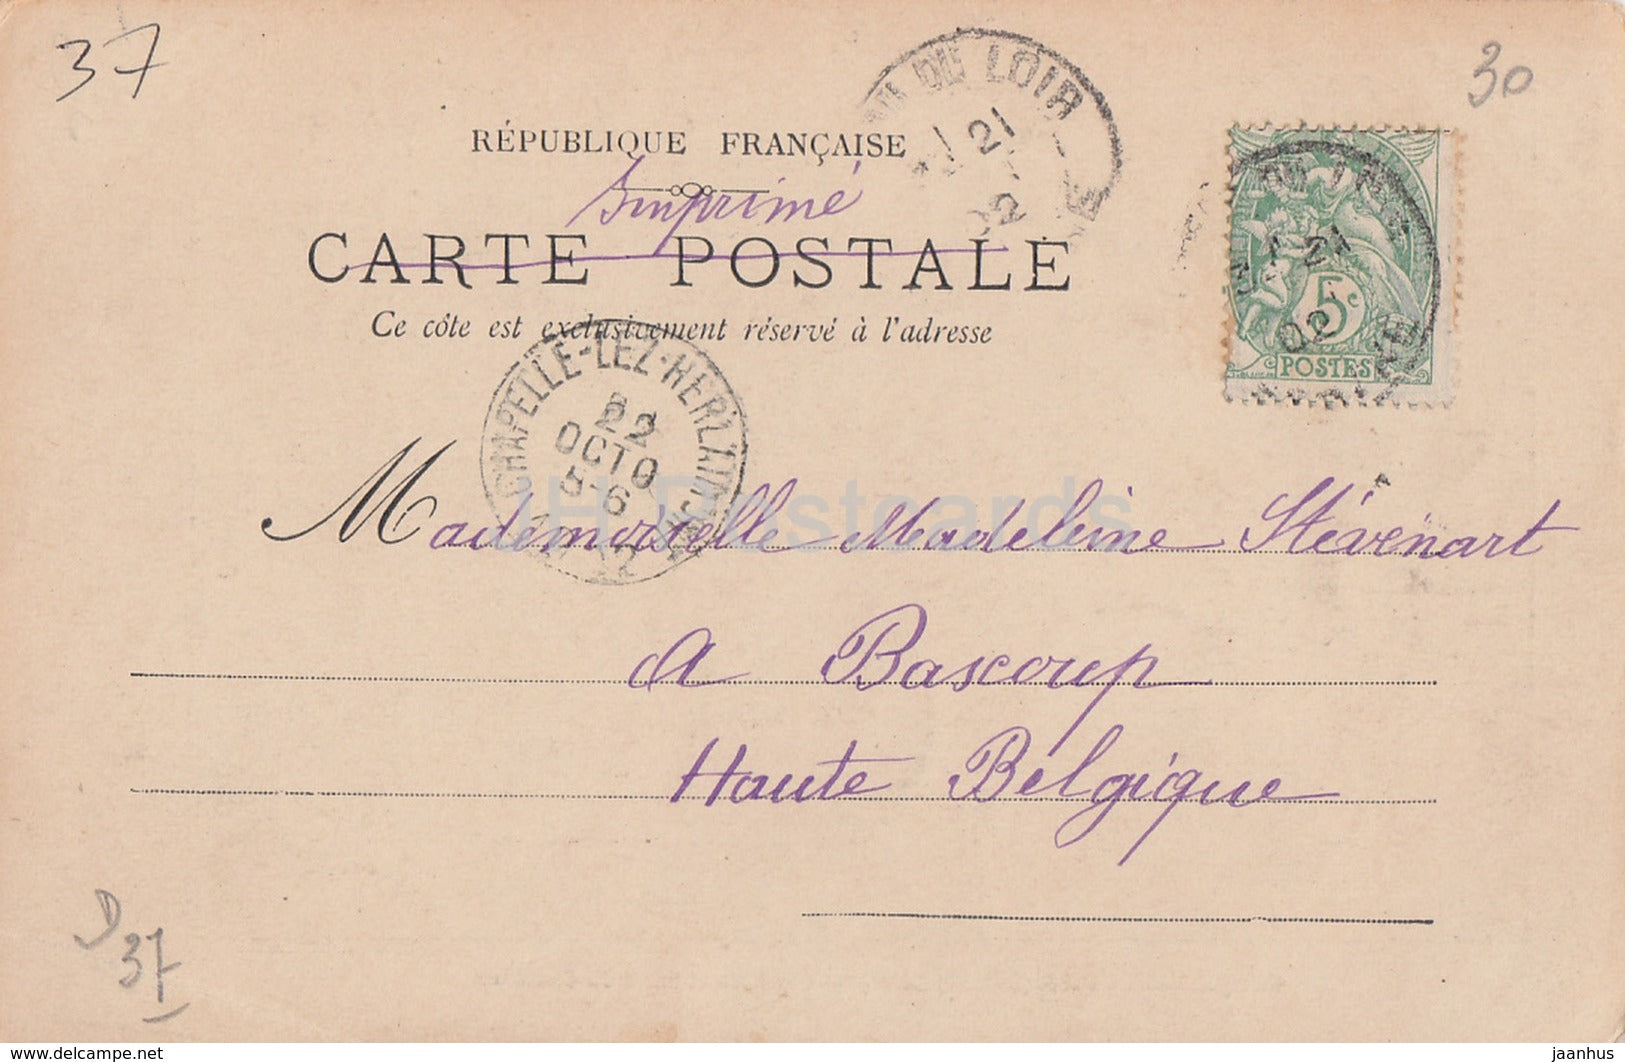 37
30
DU LOIR
21
RÉPUBLIQUE FRANÇAISE
Imprimé
CARTE POSTALE
Ce côte est exclusivement réservé à l'adresse
21
02
5c
POSTES
CHAPELLE-LEZ-HERLAIMONT
22
OCTO
5-6
JH Postcards
Mademoiselle Madeleine Stévénart
A Bascoup
Haute Belgique
D
37
www.delcampe.net
jaanhus